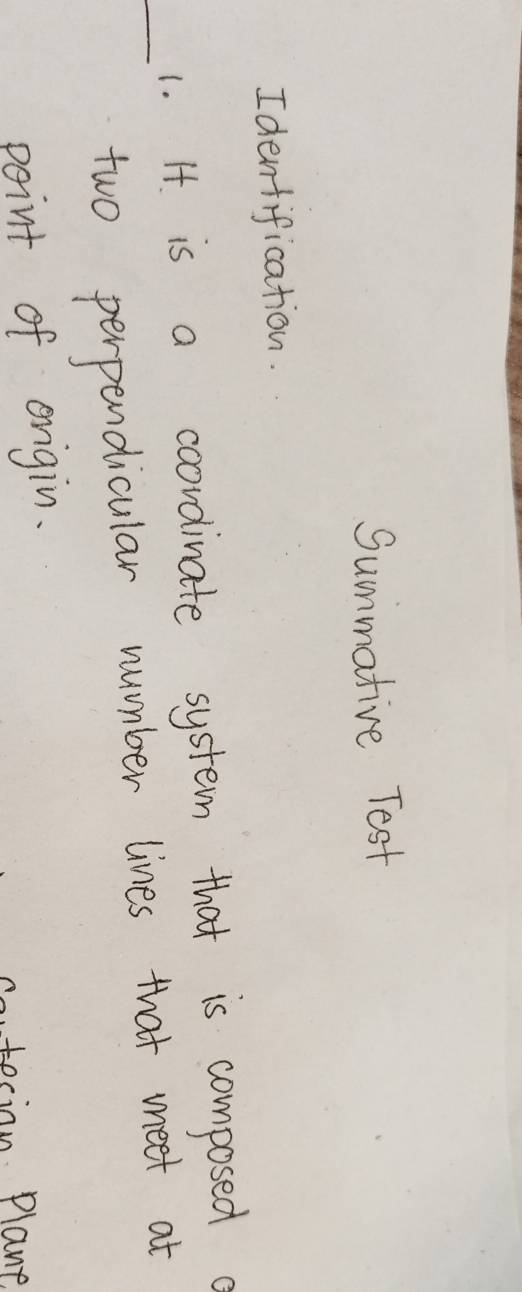 Summative Test
Identification.
1. It is a coordinate system that is composed
two perpendicular number lines that meet at
point of origin.
Cartesian Plane